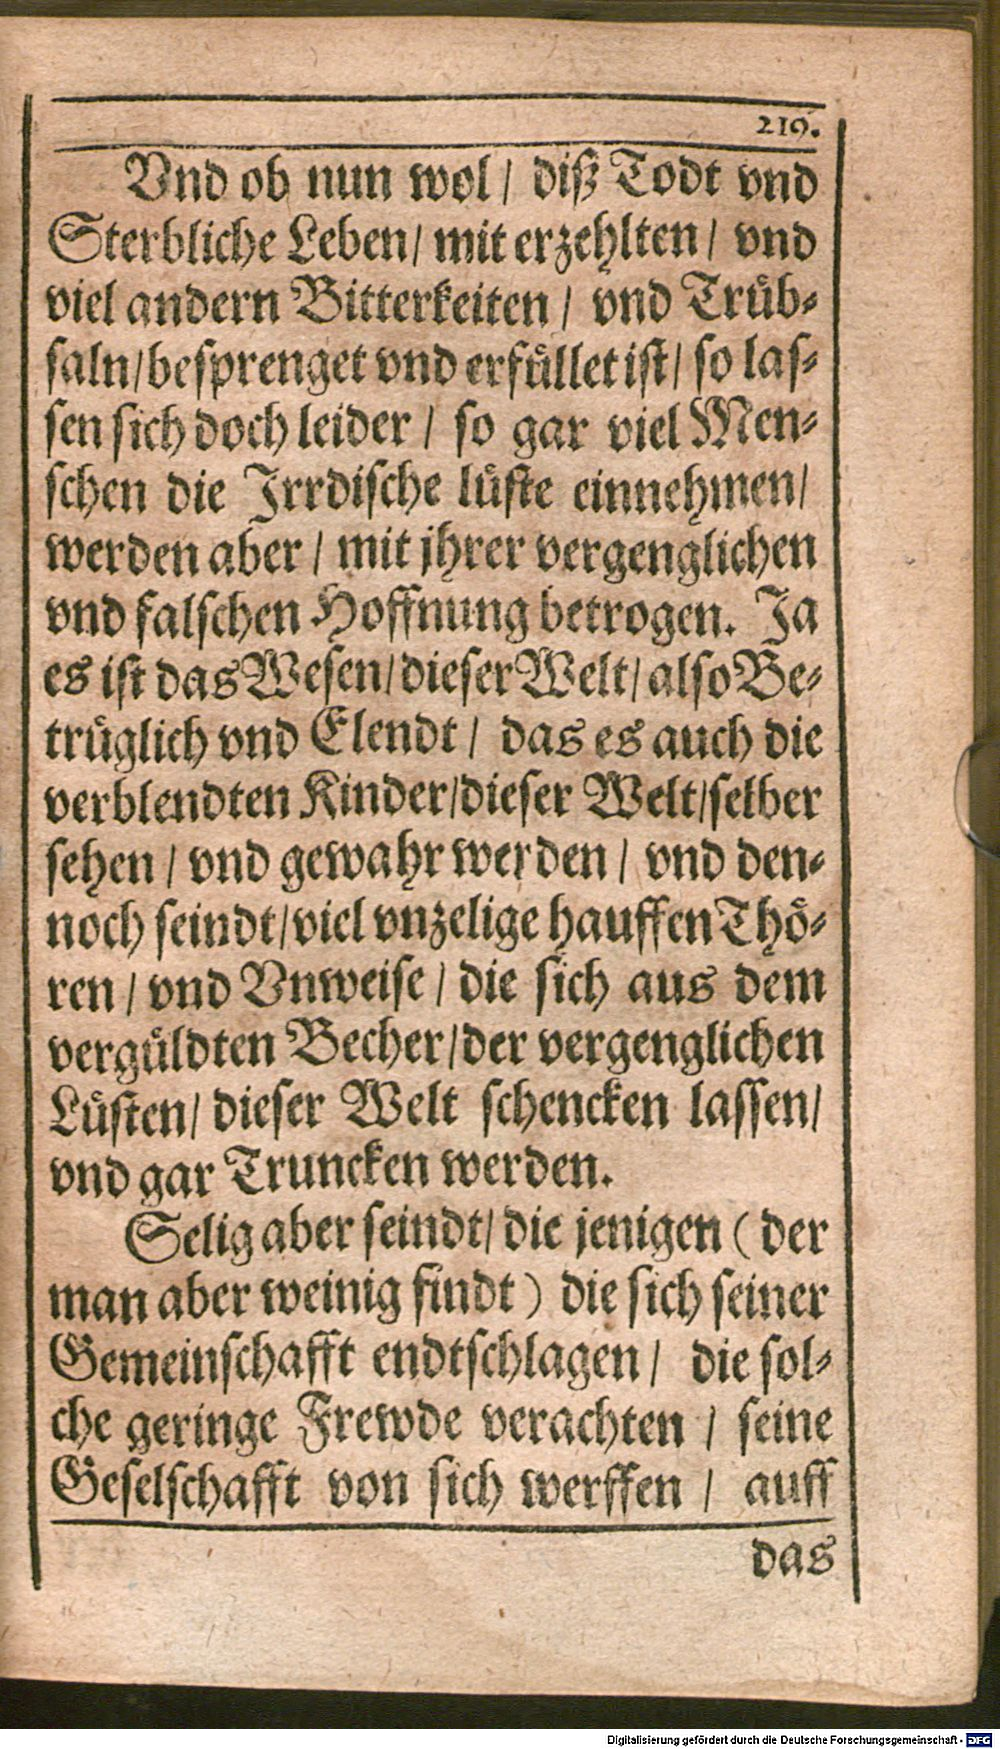 219.
Vnd ob nun wol / diß Todt vnd
Sterbliche Leben / mit erzehlten / vnd
viel andern Bitterkeiten / vnd Truͤb⸗
saln / besprenget vnd erfuͤllet ist / so las⸗
sen sich doch leider / so gar viel Men⸗
schen die Irrdische luͤste einnehmen /
werden aber / mit jhrer vergenglichen
vnd falschen Hoffnung betrogen. Ja
es ist das Wesen / dieser Welt / also Be⸗
truͤglich vnd Elendt / das es auch die
verblendten Kinder / dieser Welt / selber
sehen / vnd gewahr werden / vnd den⸗
noch seindt / viel vnzelige hauffen Thoͤ⸗
ren / vnd Vnweise / die sich aus dem
verguͤldten Becher / der vergenglichen
Luͤsten / dieser Welt schencken lassen /
vnd gar Truncken werden.
Selig aber seindt / die jenigen ( der
man aber weinig findt ) die sich seiner
Gemeinschafft endtschlagen / die sol⸗
che geringe Frewde verachten / seine
Geselschafft von sich werffen / auff
das
Digitalisierung gefördert durch die Deutsche Forschungsgemeinschaft - DFG